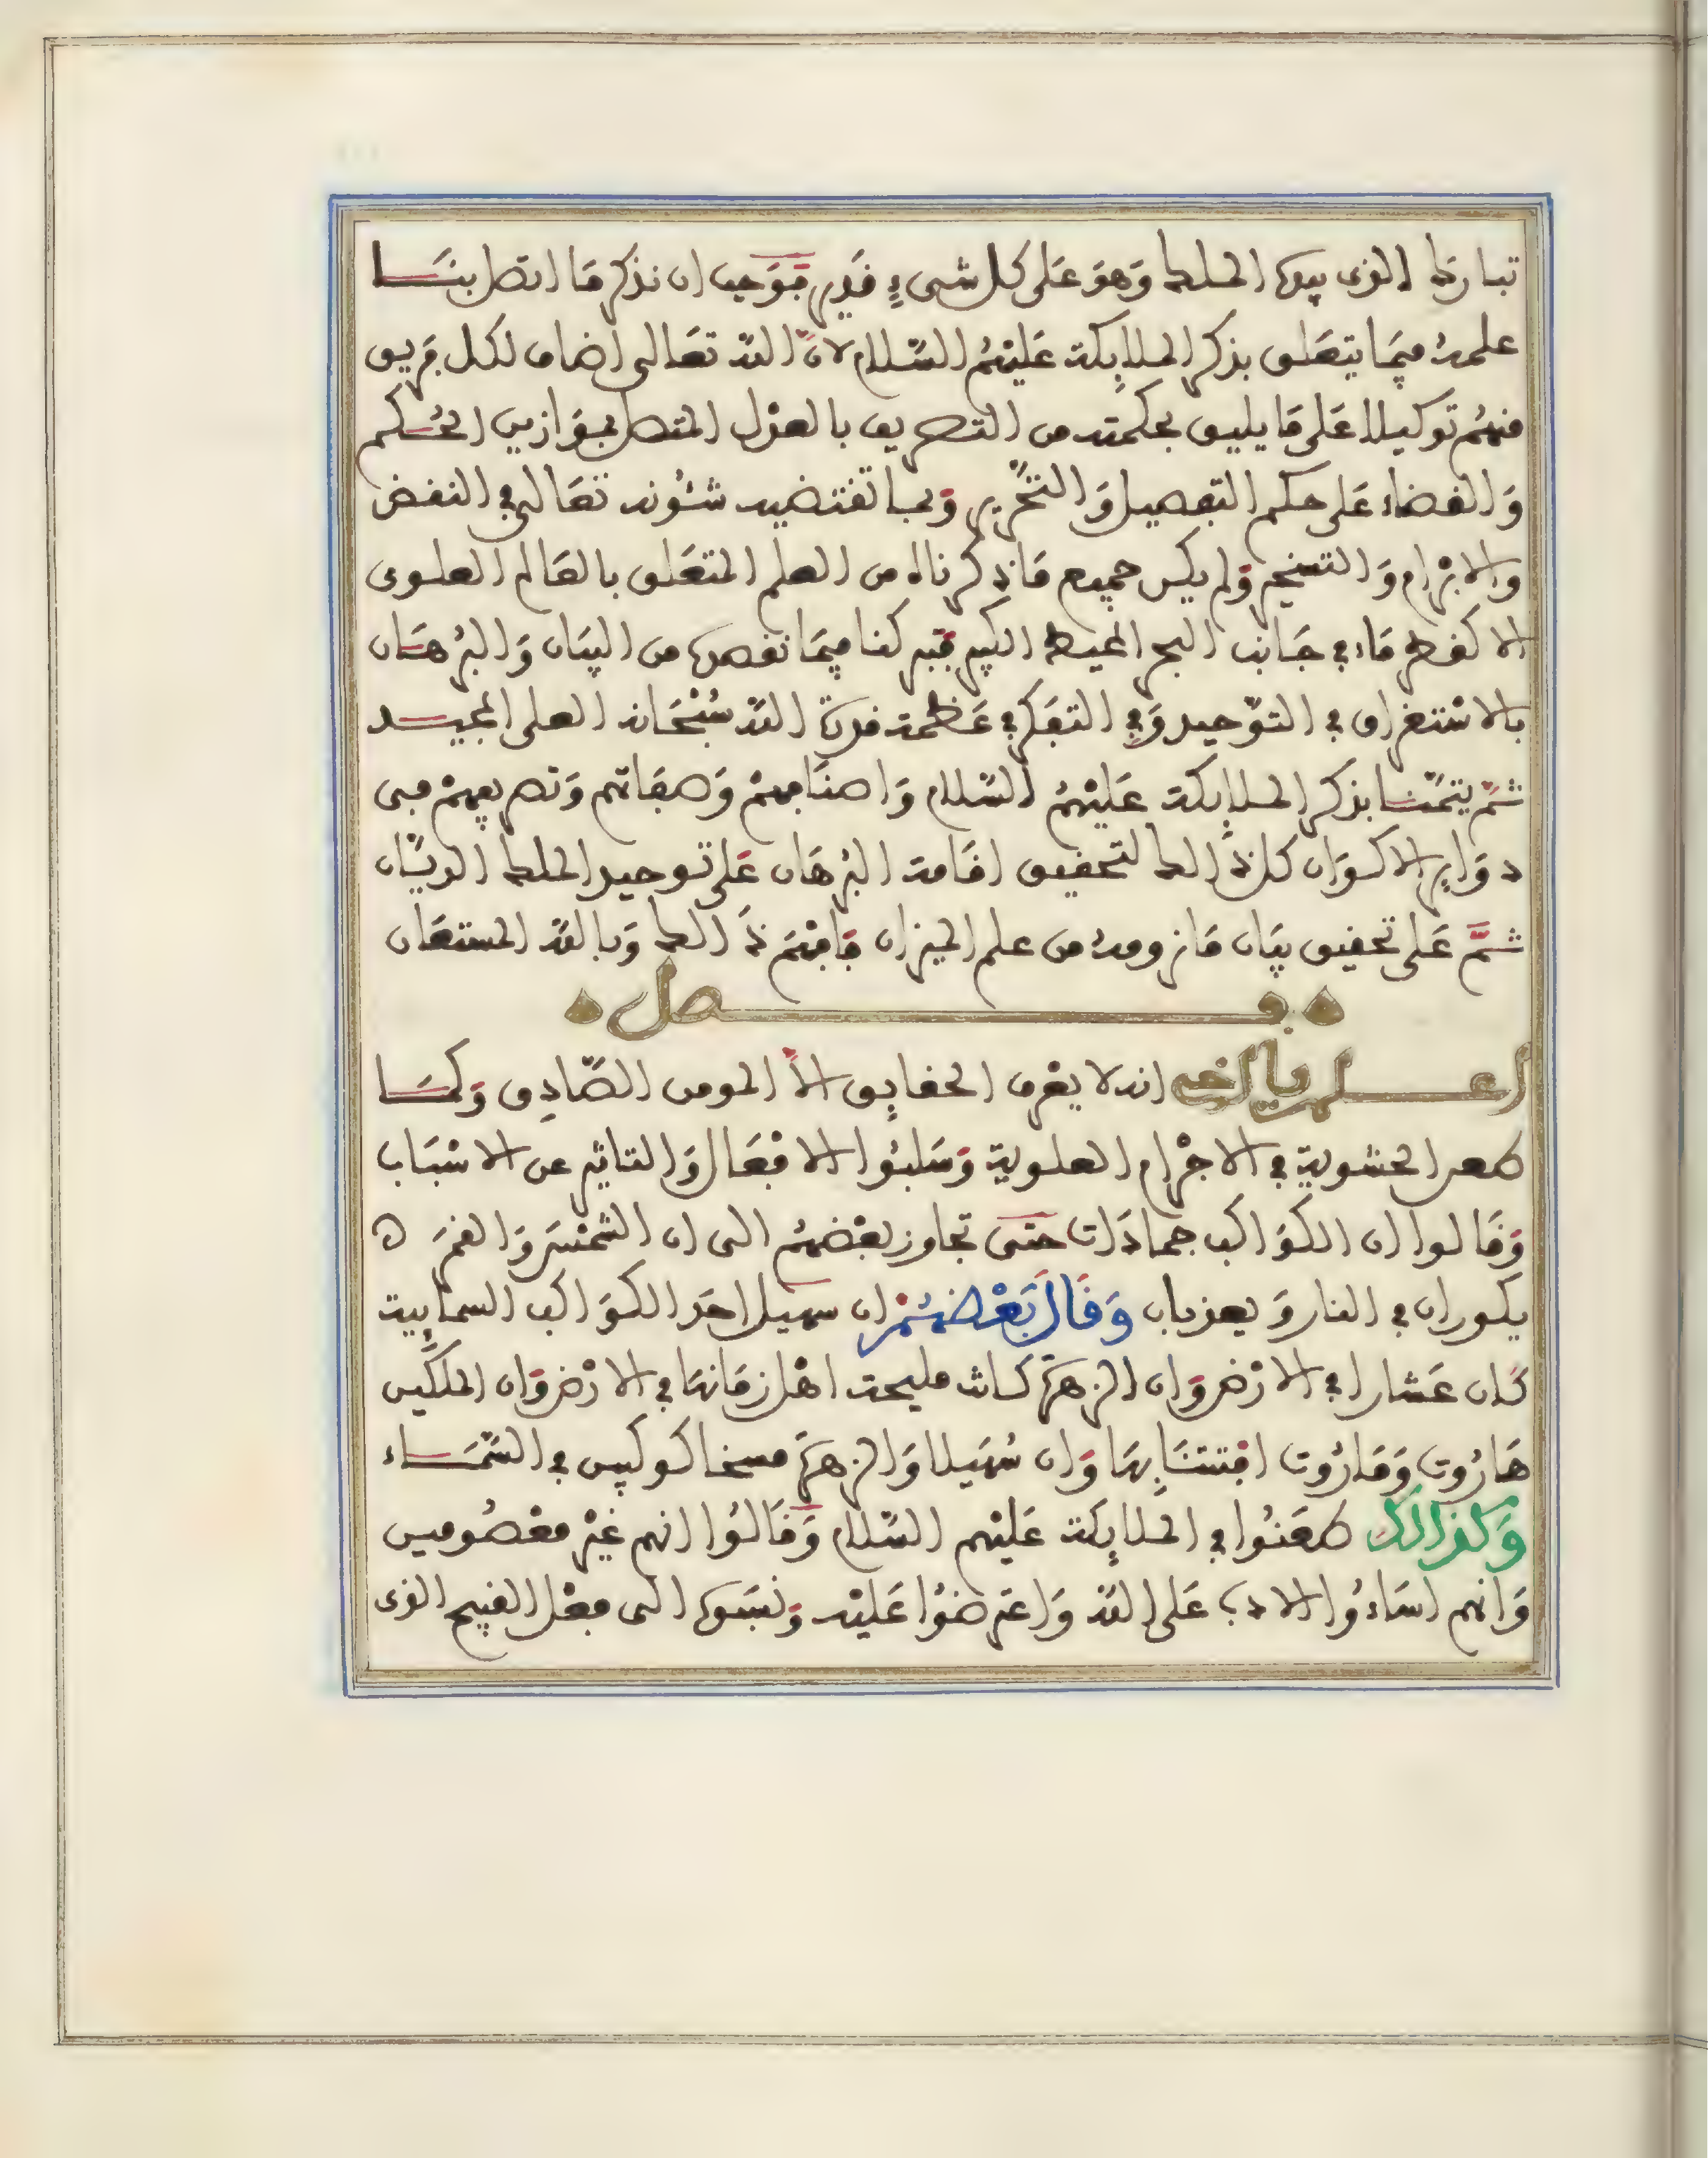 تبارك الذى بيده الملك وَهوَ عَلى كل شىءٍ قَدير فوَجب ان نذكر مَا اتصل بنَـــا
علمهُ فيمَا يتعَلق بذكر الملايكة عَليْهمُ السّلام لانّ اللّه تعَالى اضاف لكل فَريق
منهُم توكيلا عَلى مَا يليق بحكمته من التصريف بالعدْل المتصل بموَازين الحُـكم
وَالقضاء عَلى حكم التفصيل وَالتحْرير وَبما تقتضيه شئُونه تعَالى في النقض
والابْرام وَالتسخير وَلم يكن جميع مَا ذكرناه من العلم المتعَلق بالعَالم العلـوى
الا كقطرمَاء في جَانب البحر المحيط الكبير فبركنا فيمَا نقصده من البيَان وَالبُرهَـان
بالاسْتغراق في التوّحيد وَفي التفَكر في عَظمة قدرَة اللّه سُبْحَانه العلى المجيــد
ثمّ يتمّنــا بذكر الملايكة عَليْهمُ السّلام وَاصنَافهمْ وَصفَاتهم وَتصريفهمْ في
دوَاير الاكـوَان كل ذَالك لتحقيق اقَامة البُرهَان عَلى تـوحيد الملك الديّان
ثــمَّ عَلى تحقيق بيَان مَا نرومهُ من علم الميزان فَافهَم ذَالك وَبالله المستعَان
فـــــصل
اعـــلم يا اخي انه لا يعْرف الحقايق الاّ المومن الصّادِق وَلمـَـا
طعن الحشوية في الاجْرام العلـوية وَسَلبُوا الافعَال وَالتاثير عن الاسْبَاب
وَقَالوا ان الكوَاكب جمادَات حَتى تجاوز بعْضهُم الى ان الشمْسَ وَالقمَر
يكوران في النار وَيعذبان وَقَالَ بَعْضهُمْ ان سهيل احَد الكوَاكب السمَايية
كَان عَشارا في الارْض وَان الزهرَة كَانت مليحة اهْل زمَانهَا في الارْض وَان الملكَين
هَارُوت وَمَارُوت افتتنَا بهَا وَان سُهَيلا وَالزهرَة مسخا كوكبين في السّمَــاء
وَكذالك طعَنُوا في الملايكة عَليْهم السّلام وَقَالُوا انهم غيْر معْصُومين
وَانهم اسَاءُوا الادب عَلى اللّه وَاعترضُوا عَليْه وَنسَبوه الى فعْل القبيح الذى